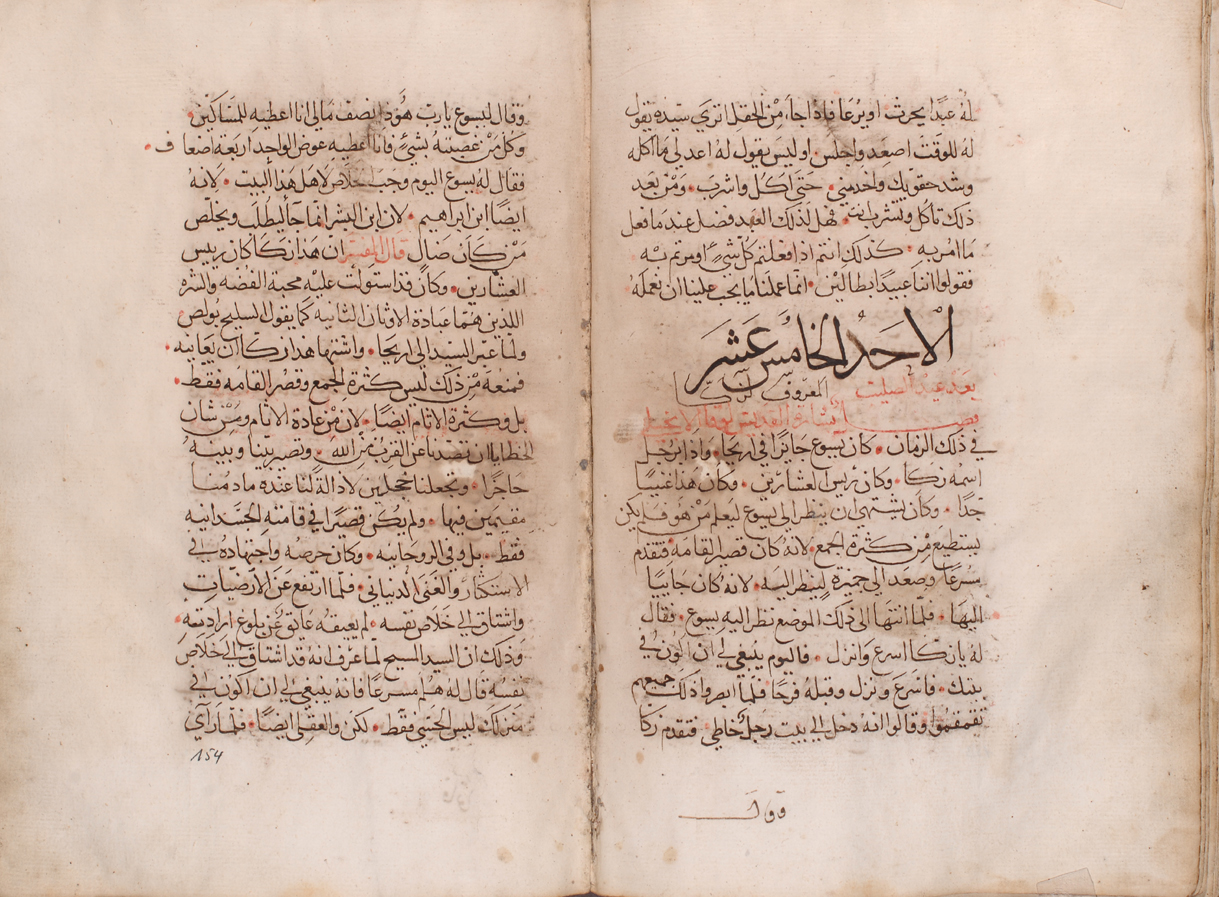 له عبدًا يحرث او يرعا فاذا جآ من الحقل اترى سيده يقول
له للوقت اصعد واجلس او ليس يقول له اعد لي ما آكله
وشد حقويك واخدمني حتى آكل واشرب ومن بعد
ذلك تاكل وتشرب انت فهل لذلك العبد فضل عند ما فعل
ما امر به كذلك انتم اذا فعلتم كل شيءٍ اومرتم به
فقولوا اننا عبيدًا بطالين انما عملنا ما يجب علينا ان نعمله
الاحد الخامس عشر
بعد عيد الصليب المعروف لزكا
فصل بشارة القديس لوقا الانجيلي
في ذلك الزمان كان يسوع جايزًا في اريحا واذا برجل
اسمه زكا وكان رييس العشارين وكان هذا غنيًا
جدًا وكان يشتهي ان ينظر الى يسوع ليعلم من هو فلم يكن
يستطيع من كثرة الجمع لانه كان قصير القامه فتقدم
سُرعًا وصعد الى جميزة لينظر اليه لانه كان جاييًا
اليها فلما انتها الى ذلك الموضع نظر اليه يسوع فقال
له يا زكا اسرع وانزل فاليوم ينبغي لي ان اكون في
بيتك فاسرع ونزل وقبله فرحًا فلما ابصروا ذلك جميعهم
تقمقموا وقالوا انه دخل الى بيت رجل خاطي فتقدم زكا
وقال
وقال ليسوع يا رب هوذا نصف مالي انا اعطيه للمساكين
وكل من غصبته بشيٍ فانا اعطيه عوض الواحد اربعة اضعاف
فقال له يسوع اليوم وجب الخلاص لاهل هذا البيت لانه
ايضًا ابن ابراهيم لان ابن البشر انما جآ ليطلب ويخلص
من كان ضال قال المفسر ان هذا زكا كان رييس
العشارين وكان قد استولت عليه محبة الفضه والشره
اللذين هما عبادة الاوثان الثانيه كما يقول السليح بولص
ولما عبر السيد الى اريحا واشتها هذا زكا ان يعاينه
فمنعه من ذلك ليس كثرة الجمع وقصر القامه فقط
بل وكثرة الاثام ايضًا لان من عادة الاثام ومن شان
الخطايا ان تصدنا عن القرب من الله وتصير بيننا وبينه
حاجزًا وتجعلنا خجلين لا دالة لنا عنده ما دمنا
مقيمين فيها ولم يكن قصيرًا في قامته الجسدانيه
فقط بل وفي الروحانيه وكان حرصه واجتهاده في
الاستكثار والغنى الدنياني فلما ارتفع عن الارضيات
واشتاق الى خلاص نفسه لم يعيقه عايق عن بلوغ ارادته
وذلك ان السيد المسيح لما عرف انه قد اشتاق الى خلاص
نفسه قال له هلم مسرعًا فانه ينبغي لي ان اكون في
منزلك ليس الحسي فقط لكن والعقلي ايضًا فلما راى
154